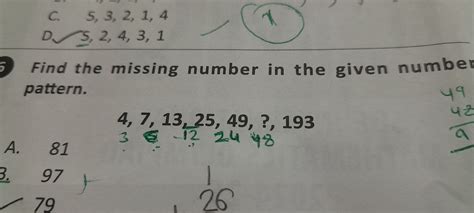 C. 5, 3, 2, 1, 4
D. 5, 2, 4, 3, 1
Find the missing number in the given number
pattern.
4, 7, 13, 25, 49, ?, 193
3 6 12 24 48
49
48
9
A. 81
B. 97
79
1
26